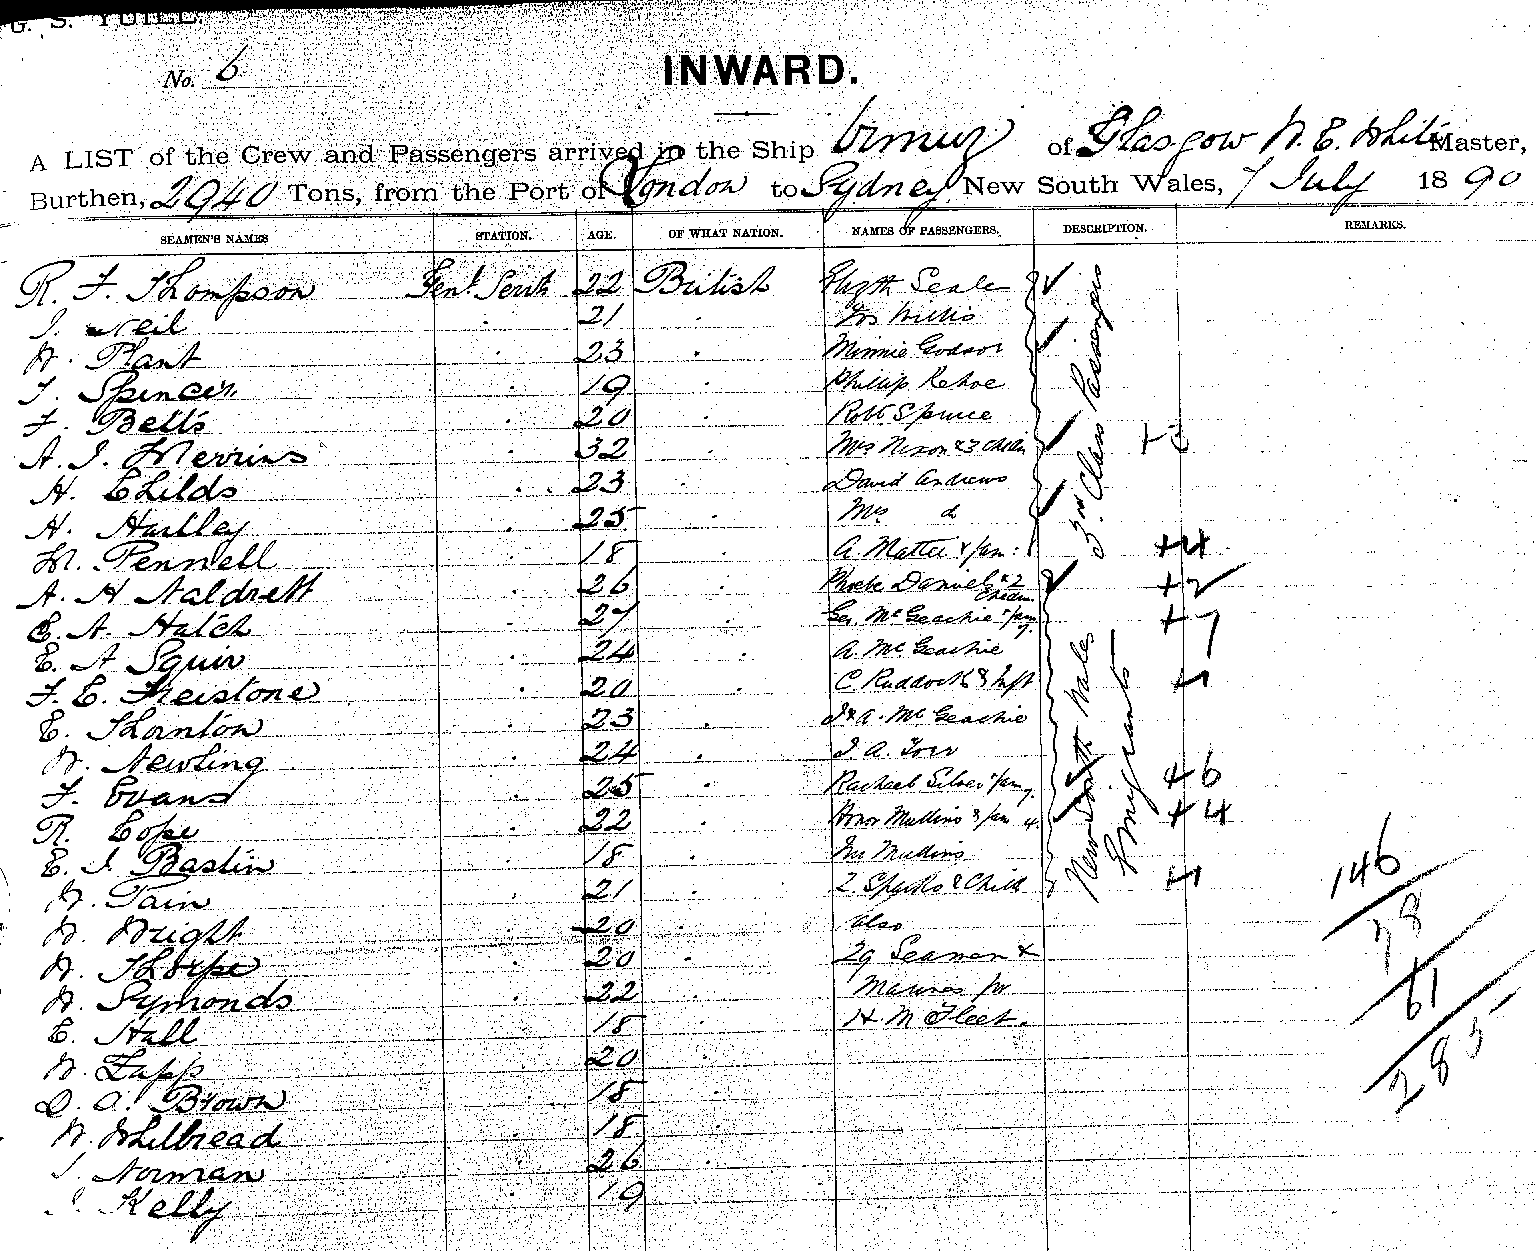 G. S. YUILL
No. 6
INWARD.
A LIST of the Crew and Passengers arrived in the Ship Ormuz of Glasgow W. E. White Master,
Burthen, 2940 Tons, from the Port of London to Sydney New South Wales, 7 July 1890
SEAMEN'S NAMES STATION. AGE. OF WHAT NATION. NAMES OF PASSENGERS. DESCRIPTION. REMARKS.
R. F. Thompson Genl. Servt 22 British Elizth Seale
J. Neil 21 Willis
W. Plant 23 Minnie Godsor
T. Spencer 19 Phillip Kehoe
F. Betts 20 Robt Spruce
A. J. Merrins 32 Mrs Nixon & 3 Chldn
H. Childs 23 David Andrews
H. Hartley 25 Mrs do
M. Pennell 18 A. Mattei & fam: +4
A. H Naldrett 26 Phoebe Daniels & 2 Chldn +2
E. A. Hatch 27 Geo. McGeachie & fam 7 +7
E. A Squir 24 A. McGeachie
F. E. Freistone 20 C Ruddock & Inft +1
E. Thornton 23 J & A. McGeachie
W. Newling 24 J. A. Torr
F. Evans 25 Rachael Silver & fam 7 +6
R. Cope 22 Honor Mullins & fam 4 +4
E. J. Bastin 18 Mullins
W. Tain 21 Sparks & Child +1
W. Wright 20 also
W. Thorpe 20 29 Seamen &
W. Symonds 22 Marines for
E. Hall 18 H M Fleet.
W. Zapp 20
D. A. Brown 18
W. Whitbread 18
J. Norman 26
J. Kelly 19
3rd. Class Passengers
New South Wales
Emigrants
146
78
61
285